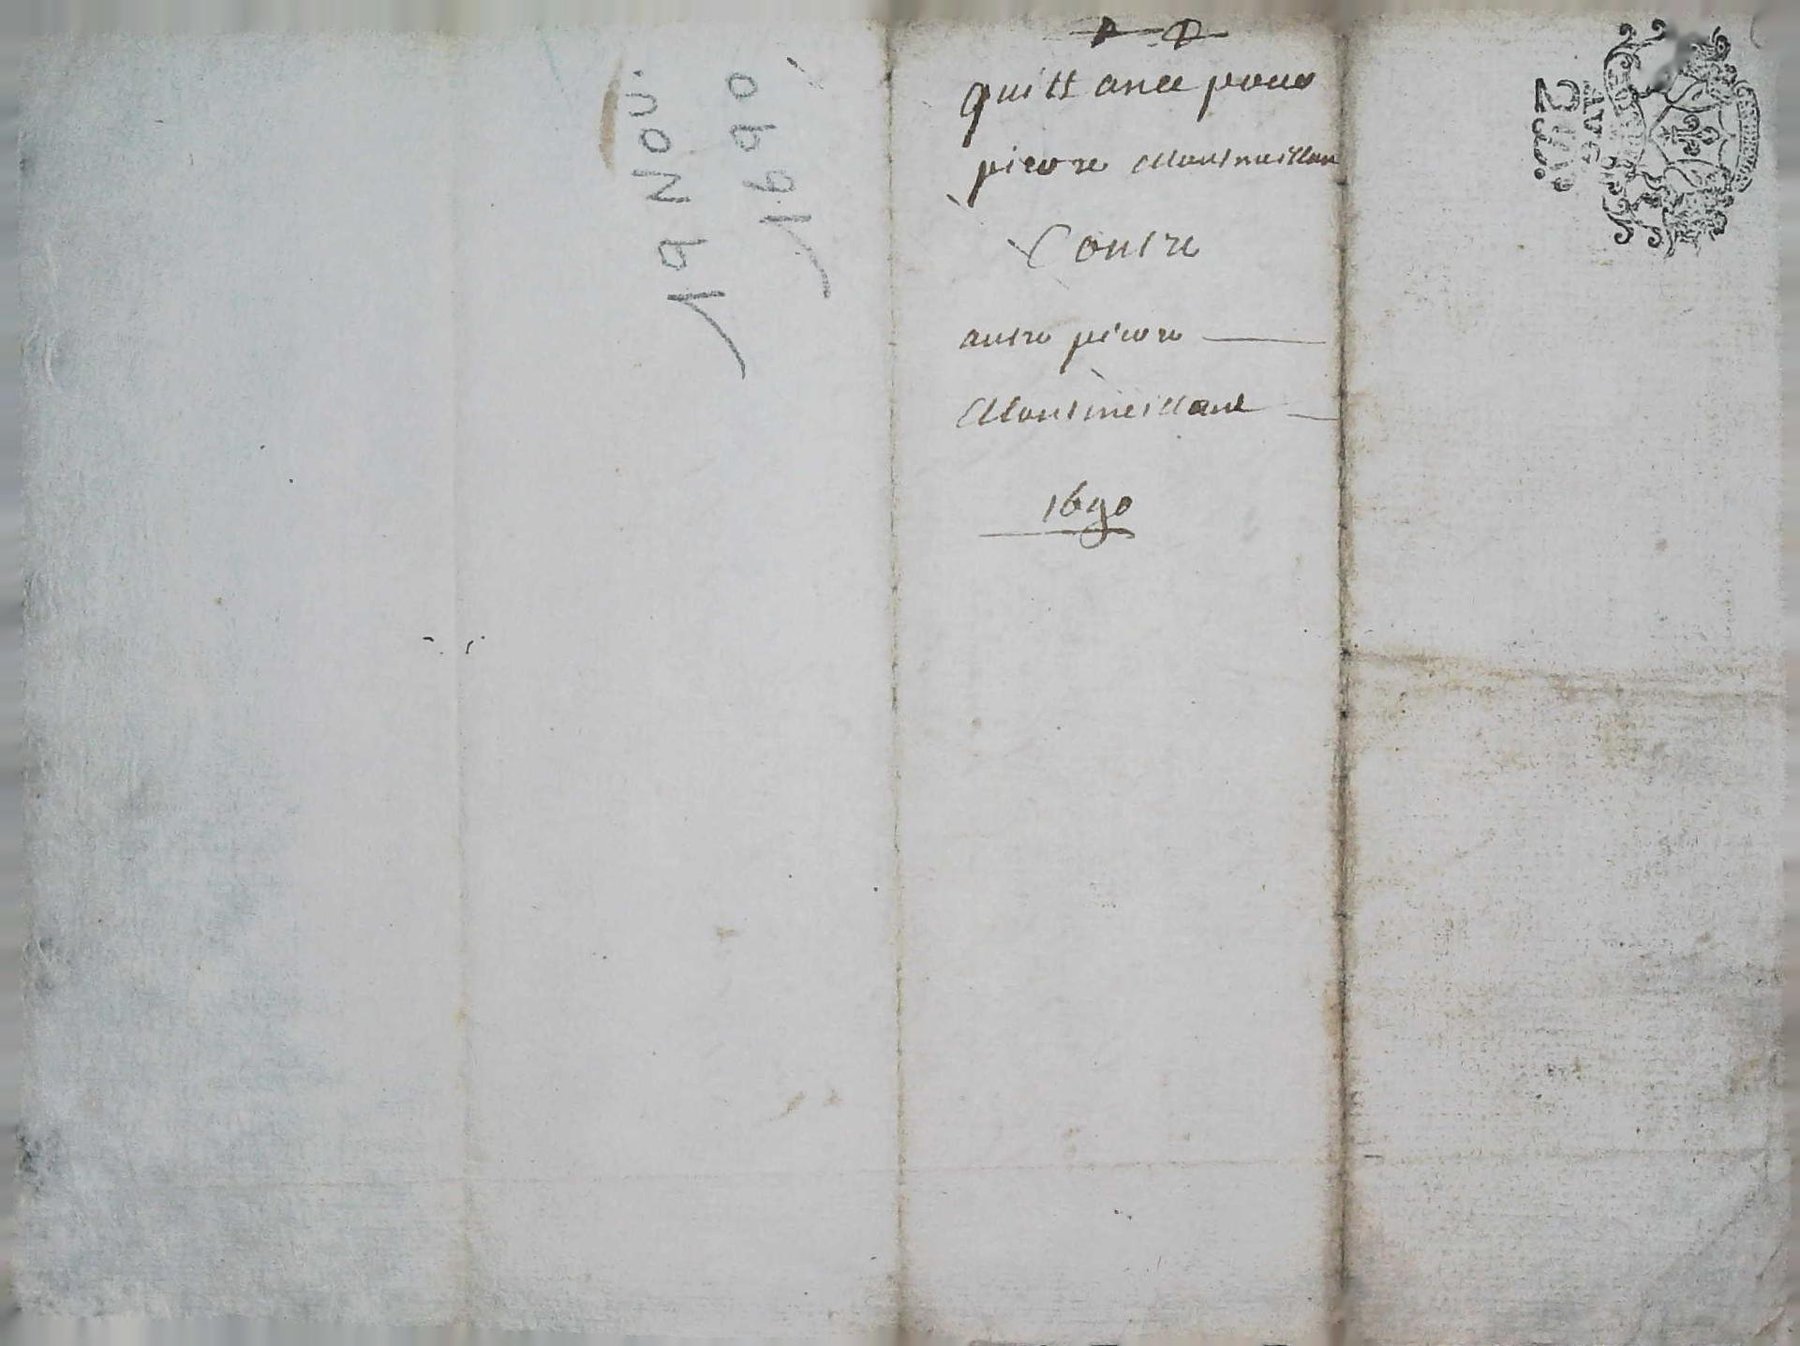 19 Nov.
1690
quittance pour
pierre Montmeillan
Contre
autre pierre
Montmeillant
1690